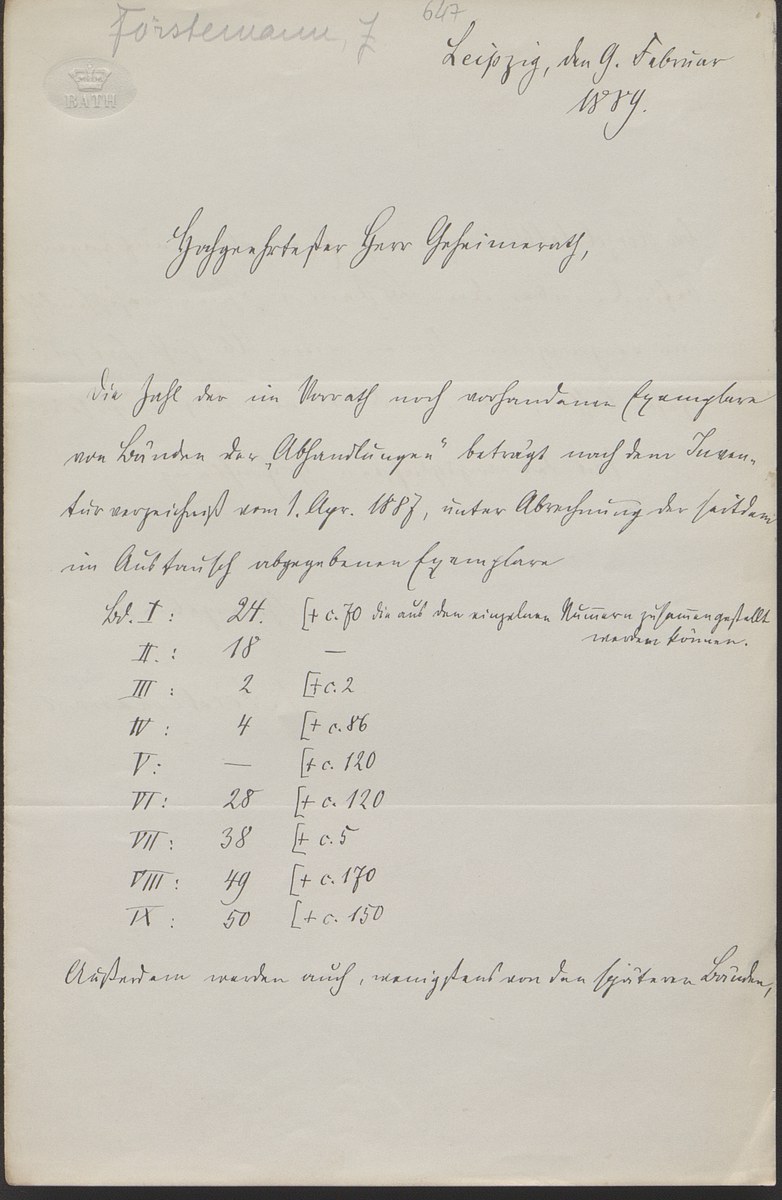 Förstemann, J
647
BATH
Leipzig, den 9. Februar
1889.
Hochgeehrtester Herr Geheimerath,
Die Zahl der im Vorrath noch vorhandenen Exemplare
von Bänden der „Abhandlungen“ beträgt nach dem Inven-
turverzeichniß vom 1. Apr. 1887, unter Abrechnung der seitdem
im Austausch abgegebenen Exemplare
Bd. I: 24. [+ c. 70 die aus den einzelnen Num̅ern zusam̅engestellt
werden können.
II.: 18 —
III: 2 [+ c. 2
IV: 4 [+ c. 86
V: — [+ c. 120
VI: 28 [+ c. 120
VII: 38 [+ c. 5
VIII: 49 [+ c. 170
IX: 50 [+ c. 150
Außerdem werden auch, wenigstens von den späteren Bänden,